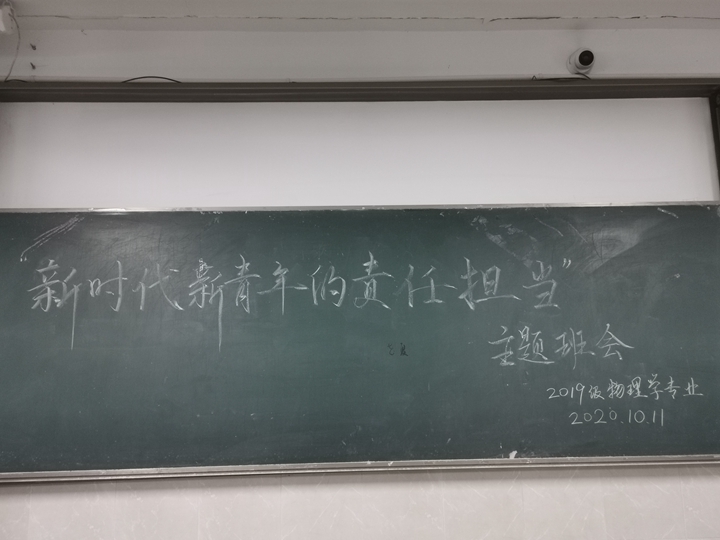 “新时代新青年的责任担当”
主题班会
2019级物理学专业
2020.10.11